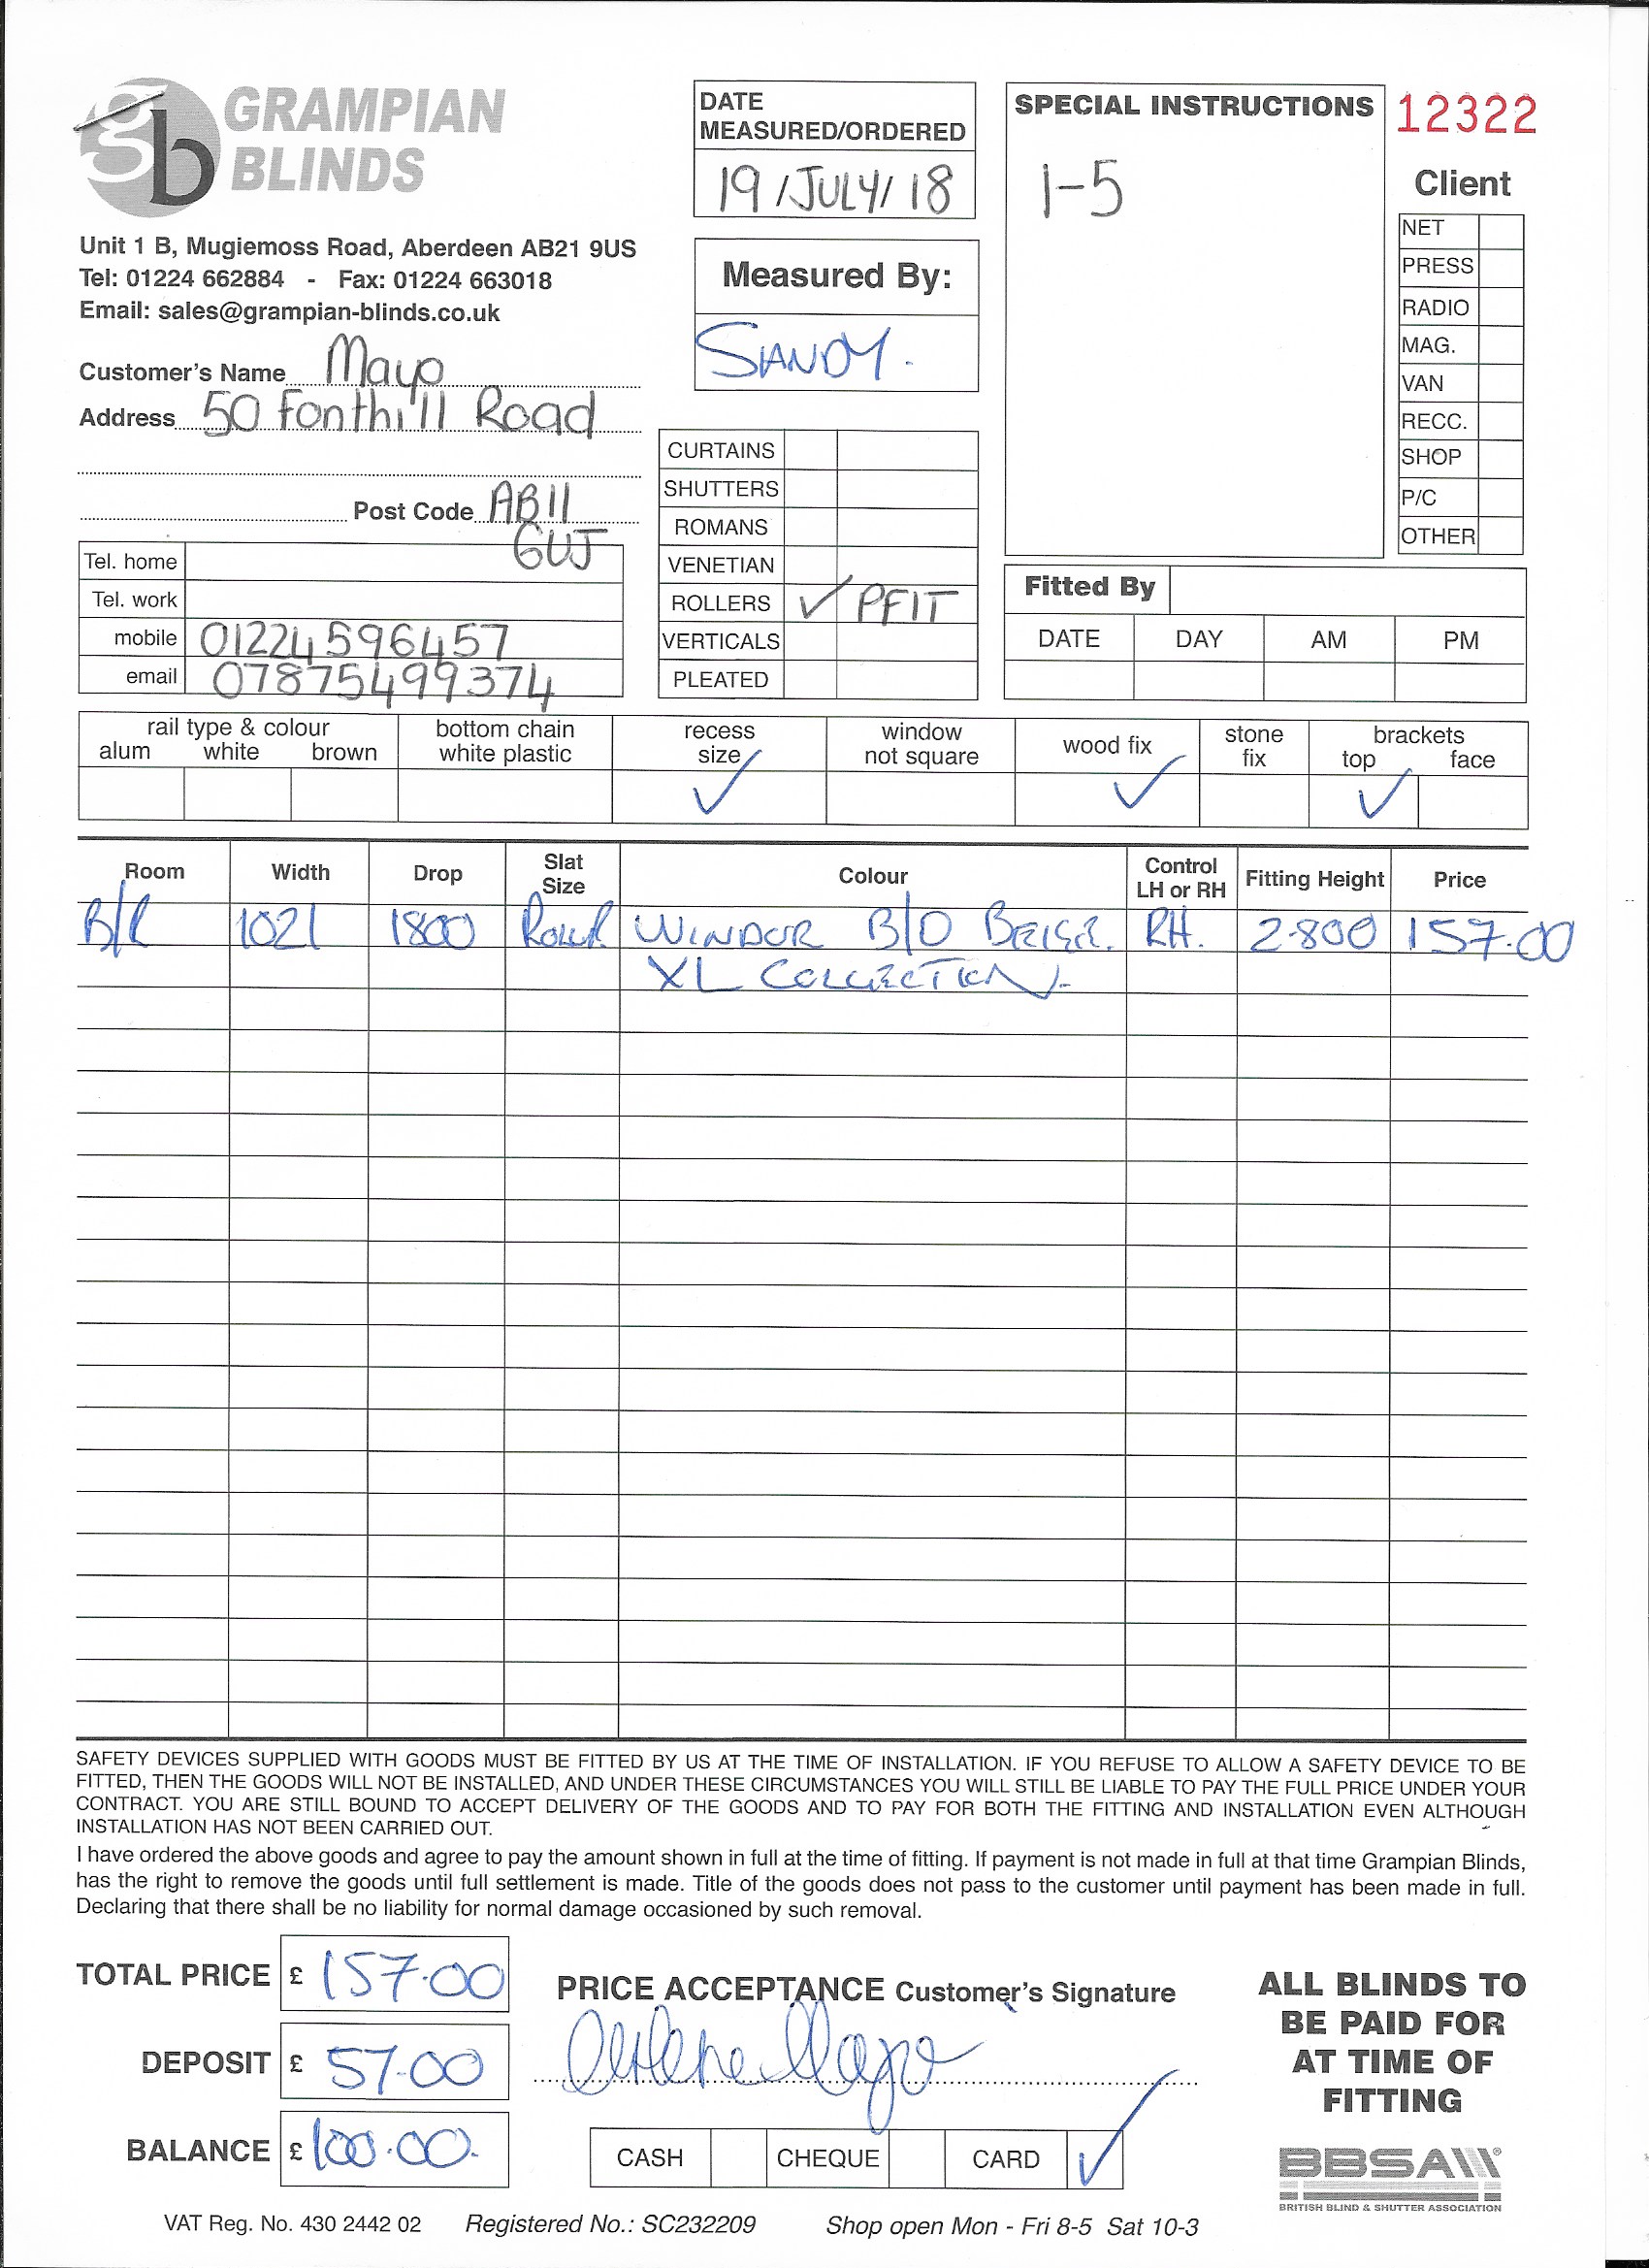 GRAMPIAN
BLINDS
Unit 1 B, Mugiemoss Road, Aberdeen AB21 9US
Tel: 01224 662884 - Fax: 01224 663018
Email: sales@grampian-blinds.co.uk
Customer's Name Mayo
Address 50 Fonthill Road
Post Code AB11
6UJ
Tel. home
Tel. work
mobile 01224 596457
email 07875499374
DATE
MEASURED/ORDERED
19/JULY/18
Measured By:
SANDY.
CURTAINS
SHUTTERS
ROMANS
VENETIAN
ROLLERS ✓ PFIT
VERTICALS
PLEATED
SPECIAL INSTRUCTIONS
1-5
12322
Client
NET
PRESS
RADIO
MAG.
VAN
RECC.
SHOP
P/C
OTHER
Fitted By
DATE DAY AM PM
rail type & colour
alum white brown
bottom chain
white plastic
recess
size ✓
window
not square
wood fix ✓
stone
fix
brackets
top face
✓
Room Width Drop Slat Size Colour Control LH or RH Fitting Height Price
B/R 1021 1800 Roller WINDOR B/O BEIGE. RH. 2.800 157.00
XL COLLECTION.
SAFETY DEVICES SUPPLIED WITH GOODS MUST BE FITTED BY US AT THE TIME OF INSTALLATION. IF YOU REFUSE TO ALLOW A SAFETY DEVICE TO BE
FITTED, THEN THE GOODS WILL NOT BE INSTALLED, AND UNDER THESE CIRCUMSTANCES YOU WILL STILL BE LIABLE TO PAY THE FULL PRICE UNDER YOUR
CONTRACT. YOU ARE STILL BOUND TO ACCEPT DELIVERY OF THE GOODS AND TO PAY FOR BOTH THE FITTING AND INSTALLATION EVEN ALTHOUGH
INSTALLATION HAS NOT BEEN CARRIED OUT.
I have ordered the above goods and agree to pay the amount shown in full at the time of fitting. If payment is not made in full at that time Grampian Blinds,
has the right to remove the goods until full settlement is made. Title of the goods does not pass to the customer until payment has been made in full.
Declaring that there shall be no liability for normal damage occasioned by such removal.
TOTAL PRICE £ 157.00
DEPOSIT £ 57.00
BALANCE £ 100.00.
PRICE ACCEPTANCE Customer's Signature
Arlene Mayo
CASH CHEQUE CARD ✓
ALL BLINDS TO
BE PAID FOR
AT TIME OF
FITTING
BBSA
BRITISH BLIND & SHUTTER ASSOCIATION
VAT Reg. No. 430 2442 02 Registered No.: SC232209 Shop open Mon - Fri 8-5 Sat 10-3